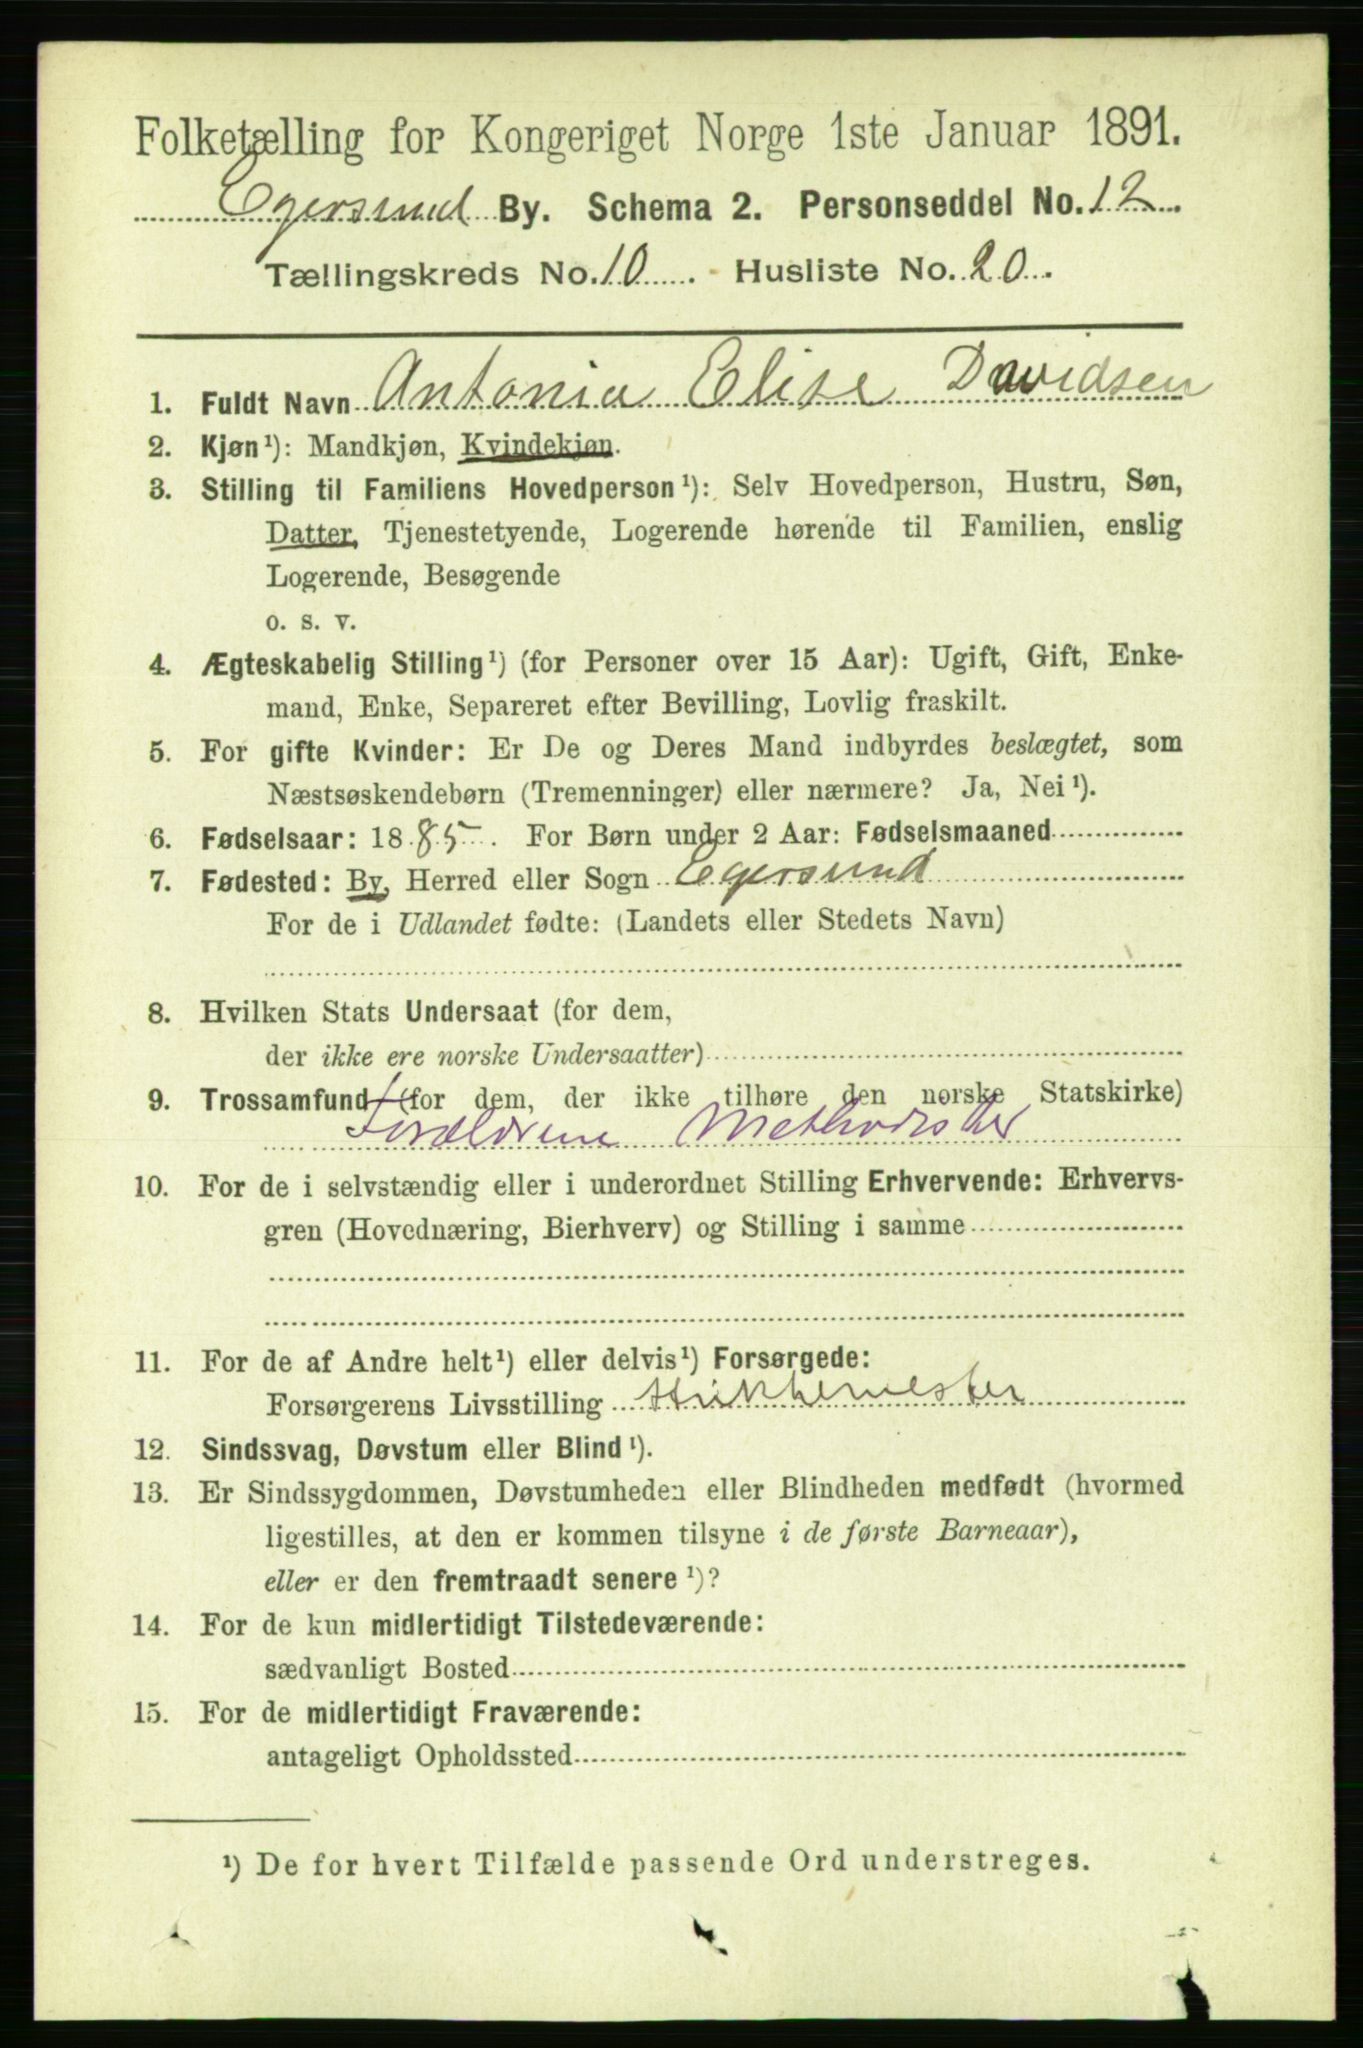 Folketælling for Kongeriget Norge 1ste Januar 1891.
Egersund By. Schema 2. Personseddel No. 12.
Tællingskreds No. 10. Husliste No. 20.
1. Fuldt Navn Antonia Elise Davidsen
2. Kjøn ¹): Mandkjøn, Kvindekjøn.
3. Stilling til Familiens Hovedperson ¹): Selv Hovedperson, Hustru, Søn,
Datter, Tjenestetyende, Logerende hørende til Familien, enslig
Logerende, Besøgende
o. s. v.
4. Ægteskabelig Stilling ¹) (for Personer over 15 Aar): Ugift, Gift, Enke-
mand, Enke, Separeret efter Bevilling, Lovlig fraskilt.
5. For gifte Kvinder: Er De og Deres Mand indbyrdes beslægtet, som
Næstsøskendebørn (Tremenninger) eller nærmere? Ja, Nei ¹).
6. Fødselsaar: 1885. For Børn under 2 Aar: Fødselsmaaned
7. Fødested: By, Herred eller Sogn Egersund
For de i Udlandet fødte: (Landets eller Stedets Navn)
8. Hvilken Stats Undersaat (for dem,
der ikke ere norske Undersaatter)
9. Trossamfund (for dem, der ikke tilhøre den norske Statskirke)
Forældrene Methodister
10. For de i selvstændig eller i underordnet Stilling Erhvervende: Erhvervs-
gren (Hovednæring, Bierhverv) og Stilling i samme
11. For de af Andre helt ¹) eller delvis ¹) Forsørgede:
Forsørgerens Livsstilling
12. Sindssvag, Døvstum eller Blind ¹).
13. Er Sindssygdommen, Døvstumheden eller Blindheden medfødt (hvormed
ligestilles, at den er kommen tilsyne i de første Barneaar),
eller er den fremtraadt senere ¹)?
14. For de kun midlertidigt Tilstedeværende:
sædvanligt Bosted
15. For de midlertidigt Fraværende:
antageligt Opholdssted
¹) De for hvert Tilfælde passende Ord understreges.